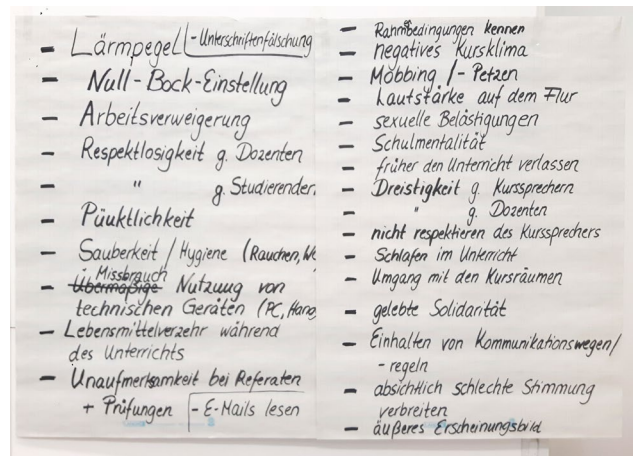 - Lärmpegel
- Unterschriftenfälschung
- Null-Bock-Einstellung
- Arbeitsverweigerung
- Respektlosigkeit g. Dozenten
- " g. Studierenden
- Pünktlichkeit
- Sauberkeit / Hygiene (Rauchen,
- Übermäßige Missbrauch Nutzung von
technischen Geräten (PC,
- Lebensmittelverzehr während
des Unterrichts
- Unaufmerksamkeit bei Referaten
+ Prüfungen
- E-Mails lesen
- Rahmenbedingungen kennen
- negatives Kursklima
- Mobbing /- Petzen
- Lautstärke auf dem Flur
- sexuelle Belästigungen
- Schulmentalität
- früher den Unterricht verlassen
- Dreistigkeit g. Kurssprechern
- " g. Dozenten
- nicht respektieren des Kurssprechers
- Schlafen im Unterricht
- Umgang mit den Kursräumen
- gelebte Solidarität
- Einhalten von Kommunikationswegen/
- regeln
- absichtlich schlechte Stimmung
verbreiten
- äußeres Erscheinungsbild